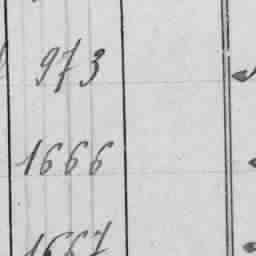 973
1666
1667